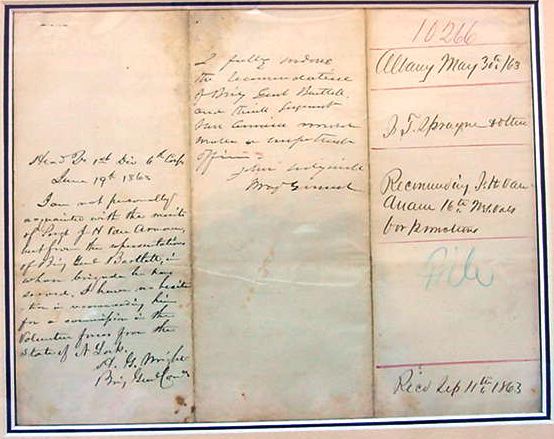 Head Qr 1st Div 6th Corps
June 19th 1863
I am not personally
acquainted with the merits
of Sergt J H Van Arnam,
but from the representations
of Brig Genl Bartlett, in
whose brigade he has
served, I have no hesita-
tion in recommending him
for a commission in the
Volunteer forces from the
State of N York.
H. G. Wright
Brig Genl Comdg
I fully indorse
the recommendation
of Brig Genl Bartlett
and think Sergeant
Van Arnam would
make a
officer
John Sedgwick
Maj General
10266
Albany May 30th /63
J. T. Sprague & others
Recommending J. H. Van
Arnam 16th
for promotions
File
Recd Sep 11th 1863